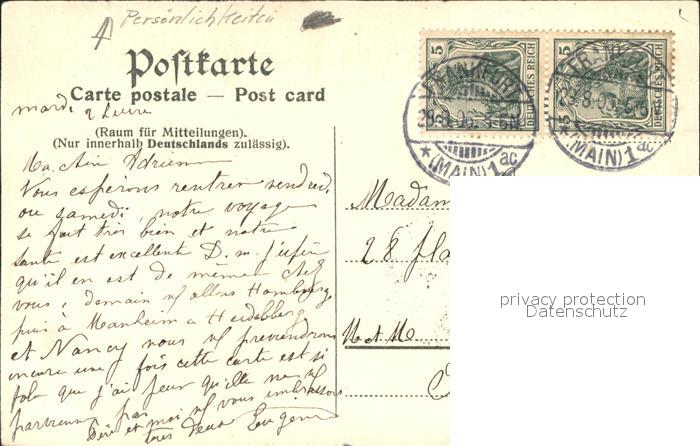 Persönlichkeiten
Postkarte
Carte postale — Post card
mardi 9 heures
(Raum für Mitteilungen).
(Nur innerhalb Deutschlands zulässig).
Ma Adrienne
Vous espérons rentrer vendredi
ou samedi, notre voyage
se fait très bien et notre
santé est excellente D. m. j'espère
qu'il en est de même chez
vous, demain ns allons Hombourg
puis à Manheim a Heidelberg
et Nancy nous ns préviendrons
encore une fois cette carte est si
jolie que j'ai peur qu'elle ne ns
parvienne pas
et moi ns vous embrassons
tous deux Eugénie
5 DEUTSCHES REICH
5 DEUTSCHES REICH
FRANKFURT
(MAIN) 1 ac
FRANKFURT
(MAIN) 1 ac
Madam
28
privacy protection
Datenschutz